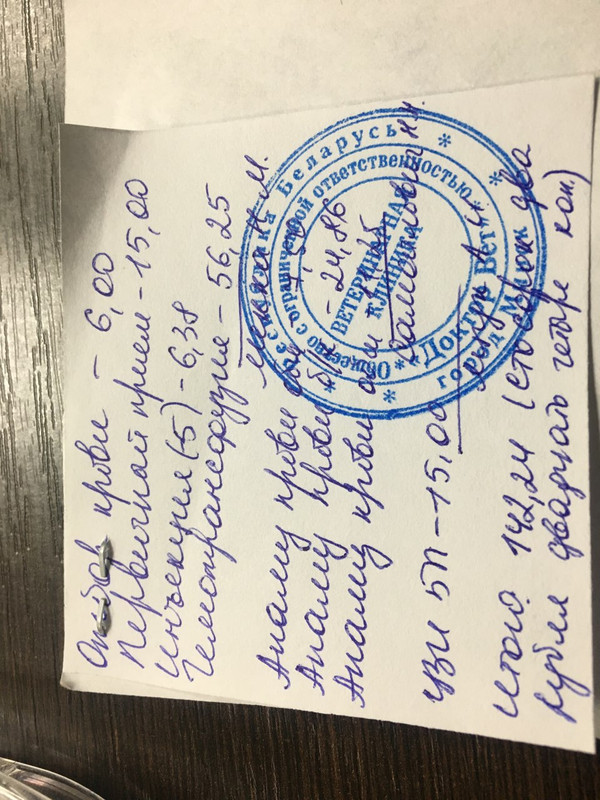 Отбор крови - 6,00
Первичный прием - 15,00
Инъекция (5) - 6,38
Гемотрансфузия - 56,25
Анализ крови
Анализ крови б/х - 24,86
Анализ крови
УЗИ БП - 15,00
Итого 142,24 (сто сорок два
рубля двадцать четыре коп.)
Республика Беларусь
Общество с ограниченной ответственностью
ВЕТЕРИНАРНАЯ
КЛИНИКА
"Доктор Вет"
город Минск